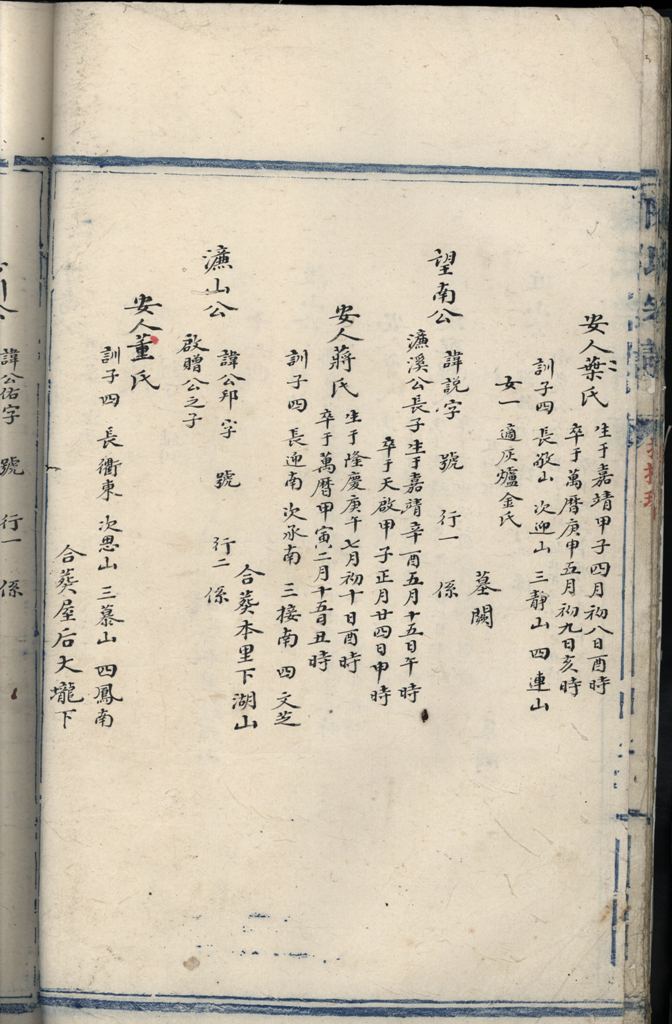 安人葉氏
生于嘉靖甲子四月初八日酉時
卒于萬曆庚申五月初九日亥時
訓子四 長敬山 次迎山 三靜山 四連山
女一 適灰爐金氏
墓闕
望南公 諱説字 號 行一 係
濂溪公長子生于嘉靖辛酉五月十五日午時
卒于天啟甲子正月廿四日申時
安人蔣氏
生于隆慶庚午七月初十日酉時
卒于萬曆甲寅二月十五日丑時
訓子四 長迎南 次承南 三接南 四文芝
合葬本里下湖山
濂山公 諱公邦字 號 行二 係
啟贈公之子
安人董氏
訓子四 長衢東 次思山 三慕山 四鳳南
合葬屋后大壠下
諱公佑字 號 行一 係